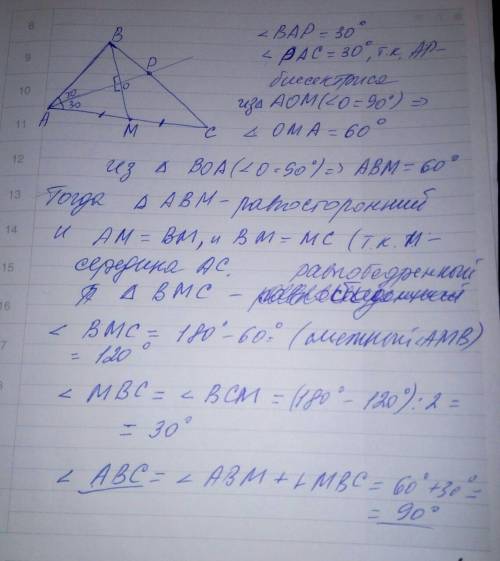 8
9
10
11
12
13
14
15
7
B
P
30
30
O
A
M
C
∠ BAP = 30°
∠ PAC = 30°, т.к. AP-
биссектриса
из Δ AOM (∠O = 90°) ⇒
∠ OMA = 60°
Из Δ BOA (∠O = 90°) ⇒ ABM = 60°
Тогда Δ ABM - равносторонний
и AM = BM, и BM = MC (т.к. M-
середина AC.
равнобедренный
Δ BMC -
∠ BMC = 180° - 60° (смежный ∠AMB)
= 120°
∠ MBC = ∠ BCM = (180° - 120°) : 2 =
= 30°
∠ ABC = ∠ ABM + ∠ MBC = 60° + 30° =
= 90°